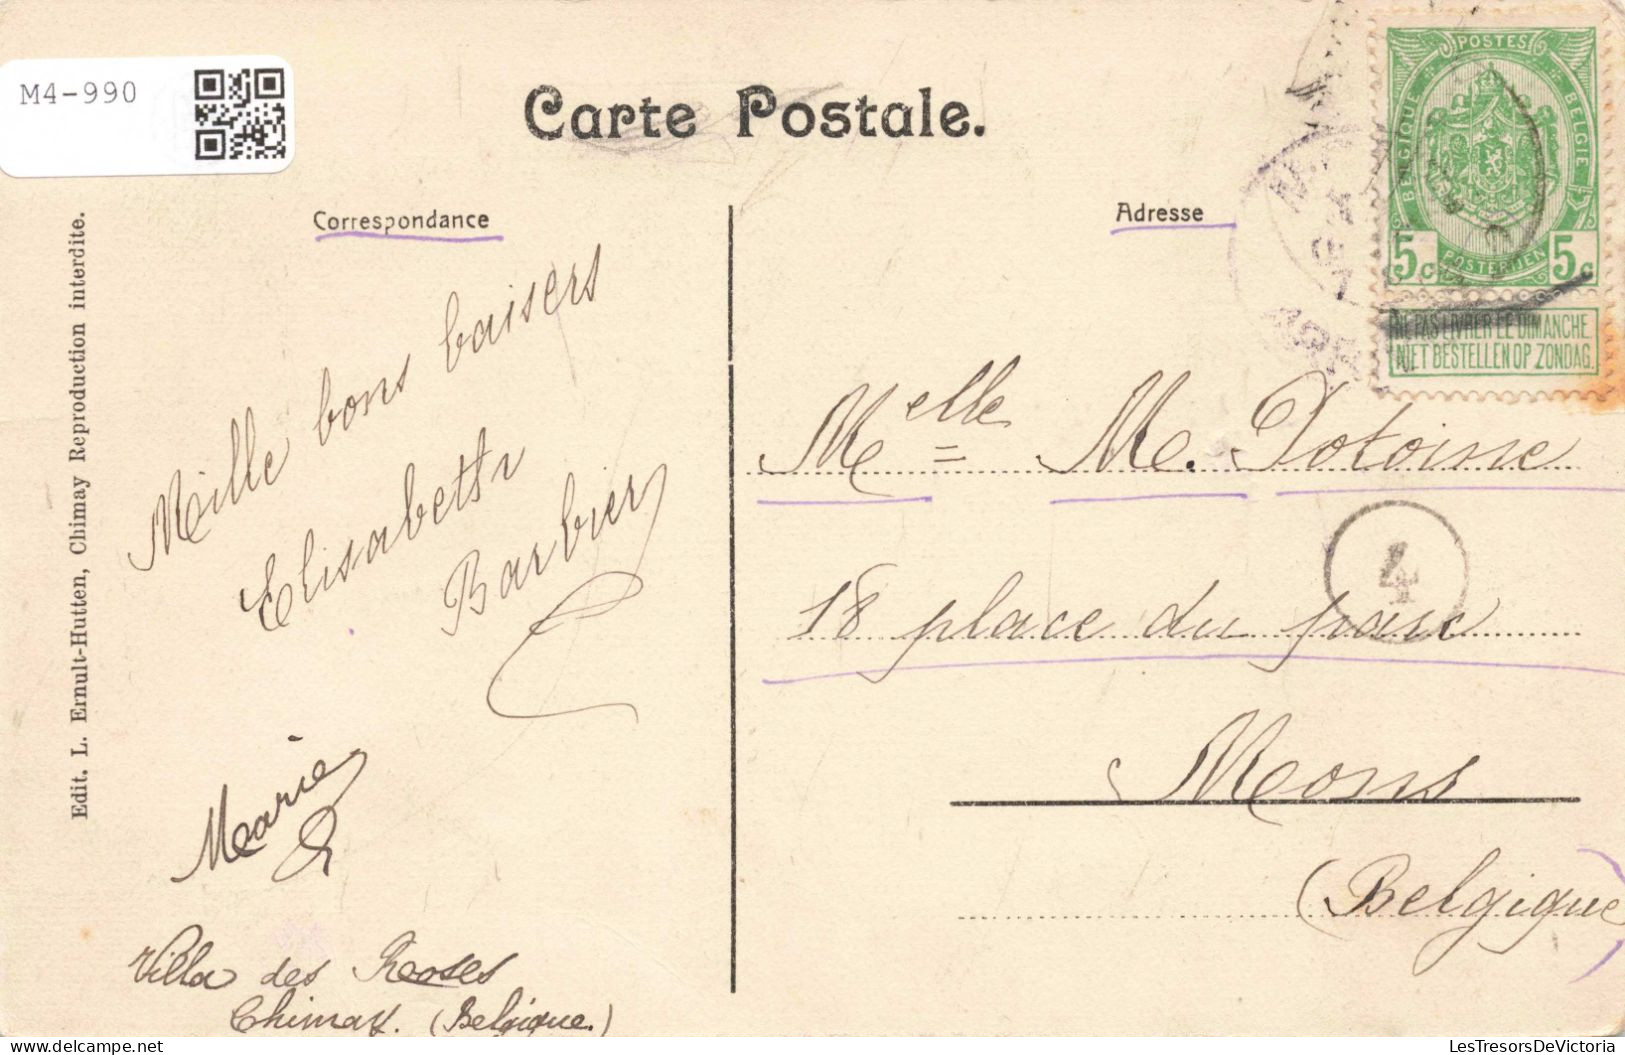 M4-990
Carte Postale.
Correspondance
Adresse
Edit. L. Ernult-Hutten, Chimay Reproduction interdite.
POSTES
BELGIQUE
BELGIE
POSTERIJEN
5c 5c
NE PAS LIVRER LE DIMANCHE
NIET BESTELLEN OP ZONDAG.
Mille bons baisers
Elisabeth
Barbier
Marie
Villa des Roses
Chimay. (Belgique.)
Melle = M. Potoine
4
18 place du parc
Mons
(Belgique)
LesTresorsDeVictoria